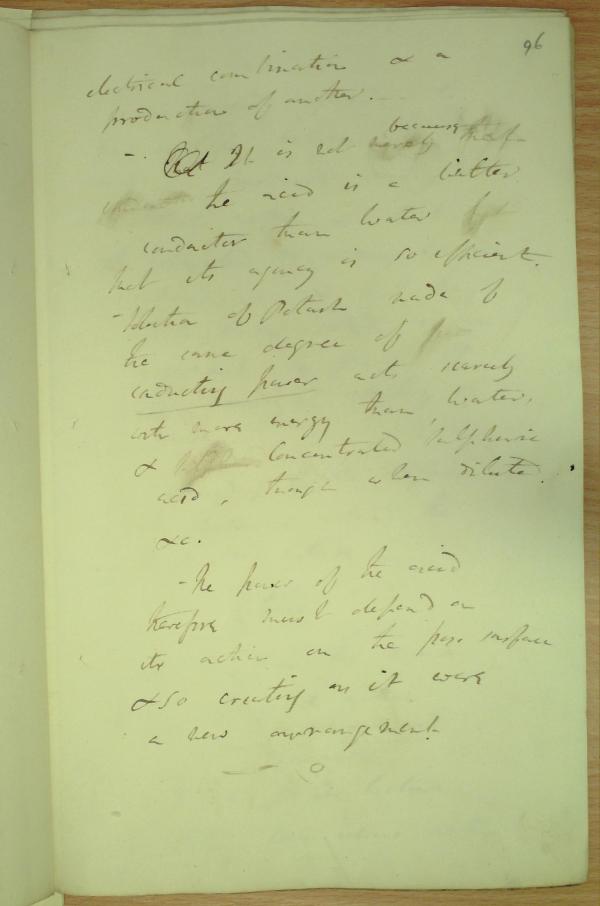 96
electrical combination & a
production of another. —
- It is not merely because
the acid is a better
conductor than water
that its agency is so efficient.
- Solution of Potash made of
the same degree of
conducting power acts scarcely
with more energy than water,
& Concentrated Sulphuric
acid, though when diluted.
&c.
- The power of the acid
therefore must depend on
its action on the surface
& so creating as it were
a new arrangement.